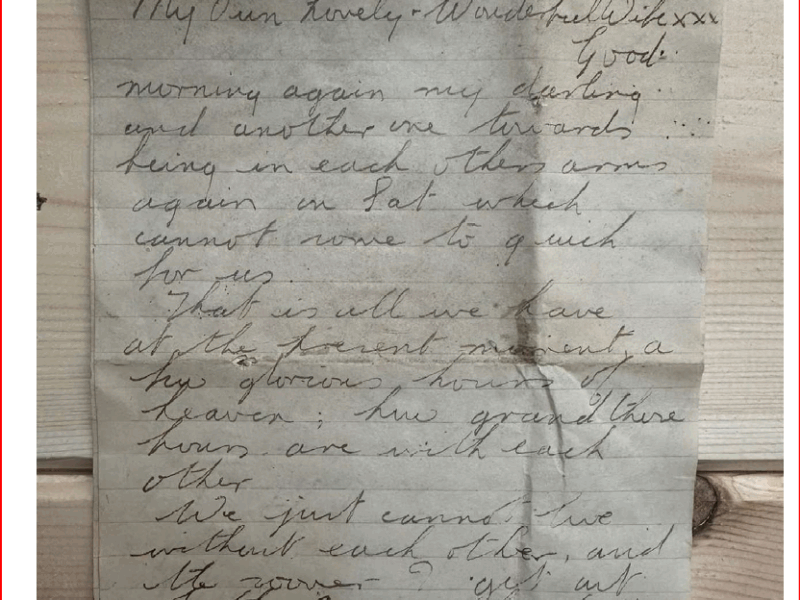 My Own Lovely - Wonderful Wife xxx
Good
morning again my darling
and another one towards
being in each others arms
again on Sat which
cannot come to quick
for us.
That is all we have
at the present moment, a
few glorious hours of
heaven ; how grand those
hours are with each
other
We just cannot live
without each other, and
the sooner I get out